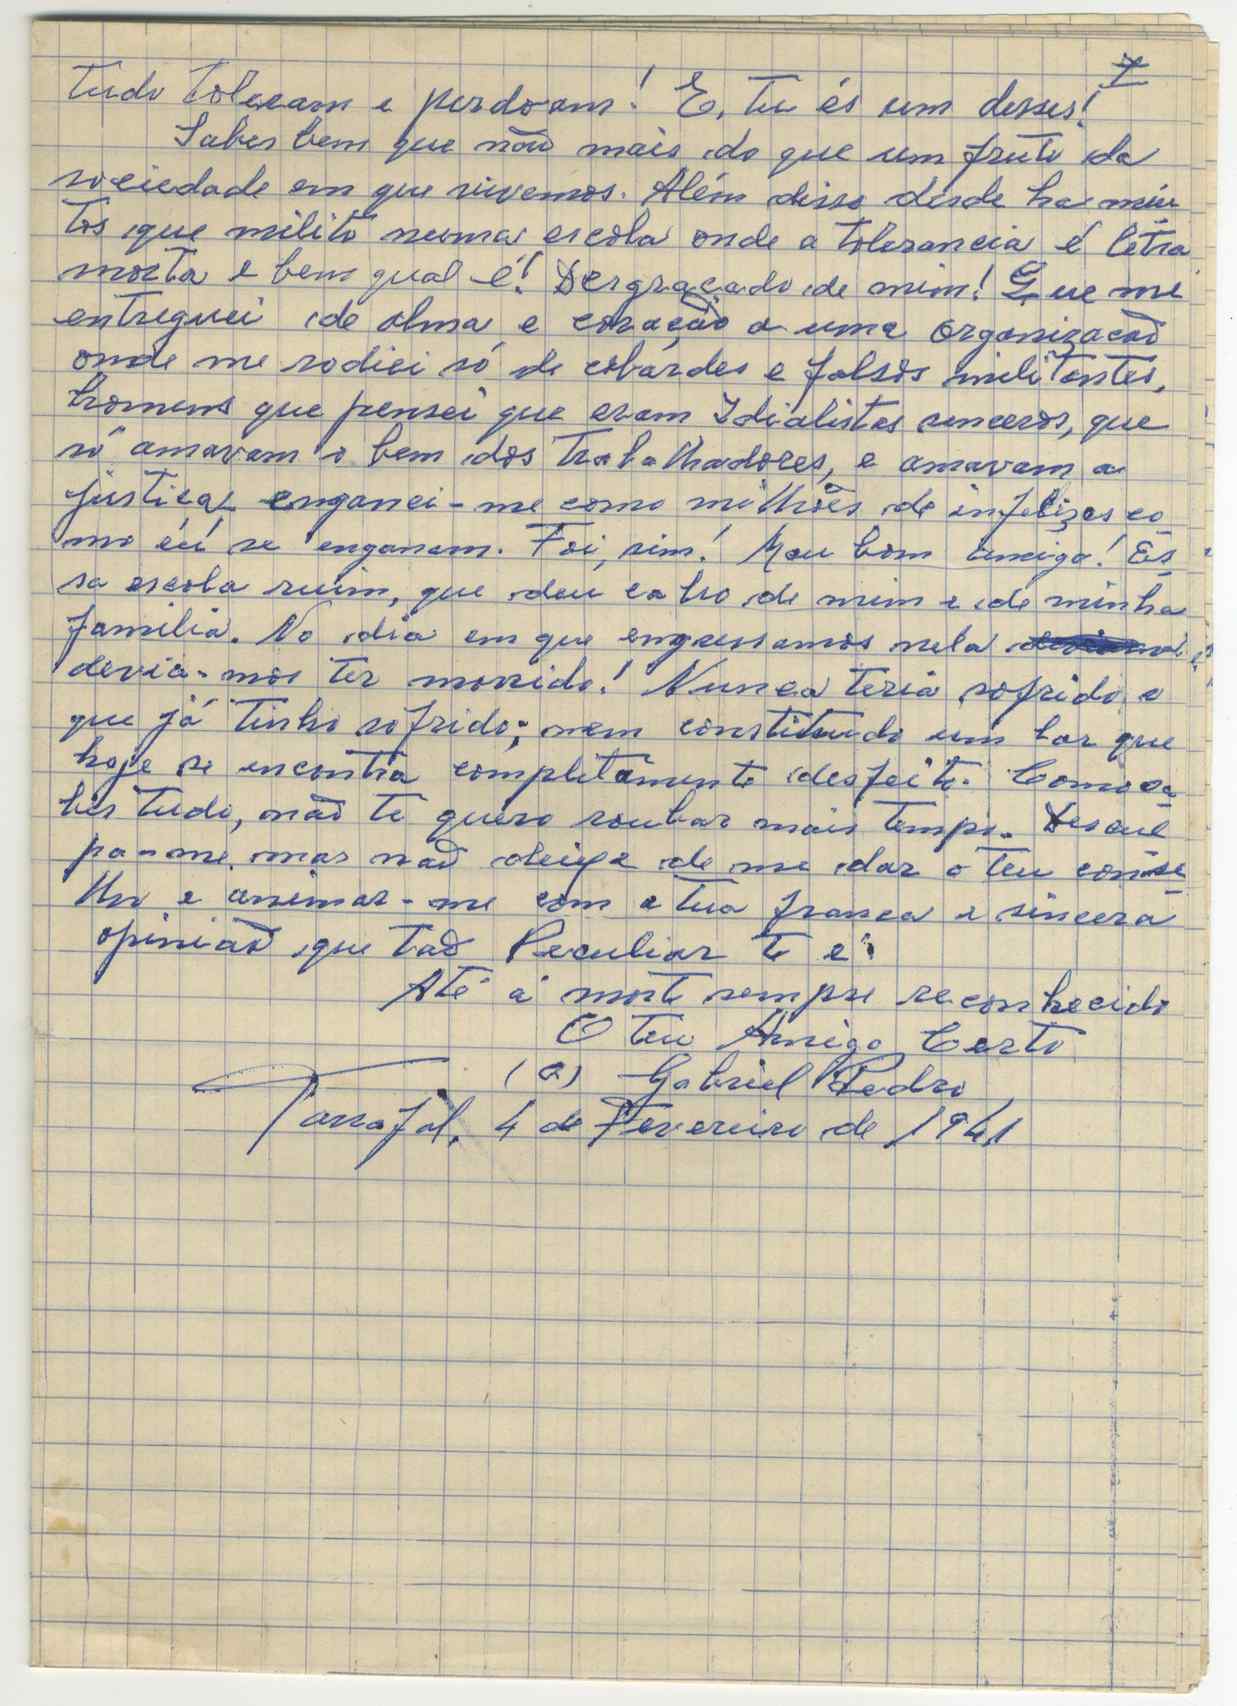 7
tudo toleram e perdoam! E, tu és um desses!
Sabes bem que não mais do que um fruto da
sociedade em que vivemos. Além disso desde ha mui
tos que milito numa escola onde a tolerancia é letra
morta e bem qual é! Desgraçado de mim! Que me
entreguei de alma e coração a uma organização
onde me rodiei só de cobardes e falsos militantes,
homens que pensei que eram Idialistas sinceros, que
só amavam o bem dos trabalhadores, e amavam a
justiça, enganei-me como milhões de infelizes co-
mo eu se enganam. Foi, sim! Meu bom amigo! Es-
sa escola ruim, que deu cabo de mim e de minha
familia. No dia em que engressamos nela
devia-mos ter morrido! Nunca teria sofrido o
que já tinho sofrido; nem constituido um lar que
hoje se encontra completamente desfeito. Como sa-
bes tudo, não te quero roubar mais tempo. Descul
pa-me mas não deixe de me dar o teu conse-
lho e animar-me com a tua franca e sincera
opinião que tão Peculiar te é.
Até á morte sempre reconhecido
O teu Amigo Certo
(a) Gabriel Pedro
Tarrafal, 4 de Fevereiro de 1941